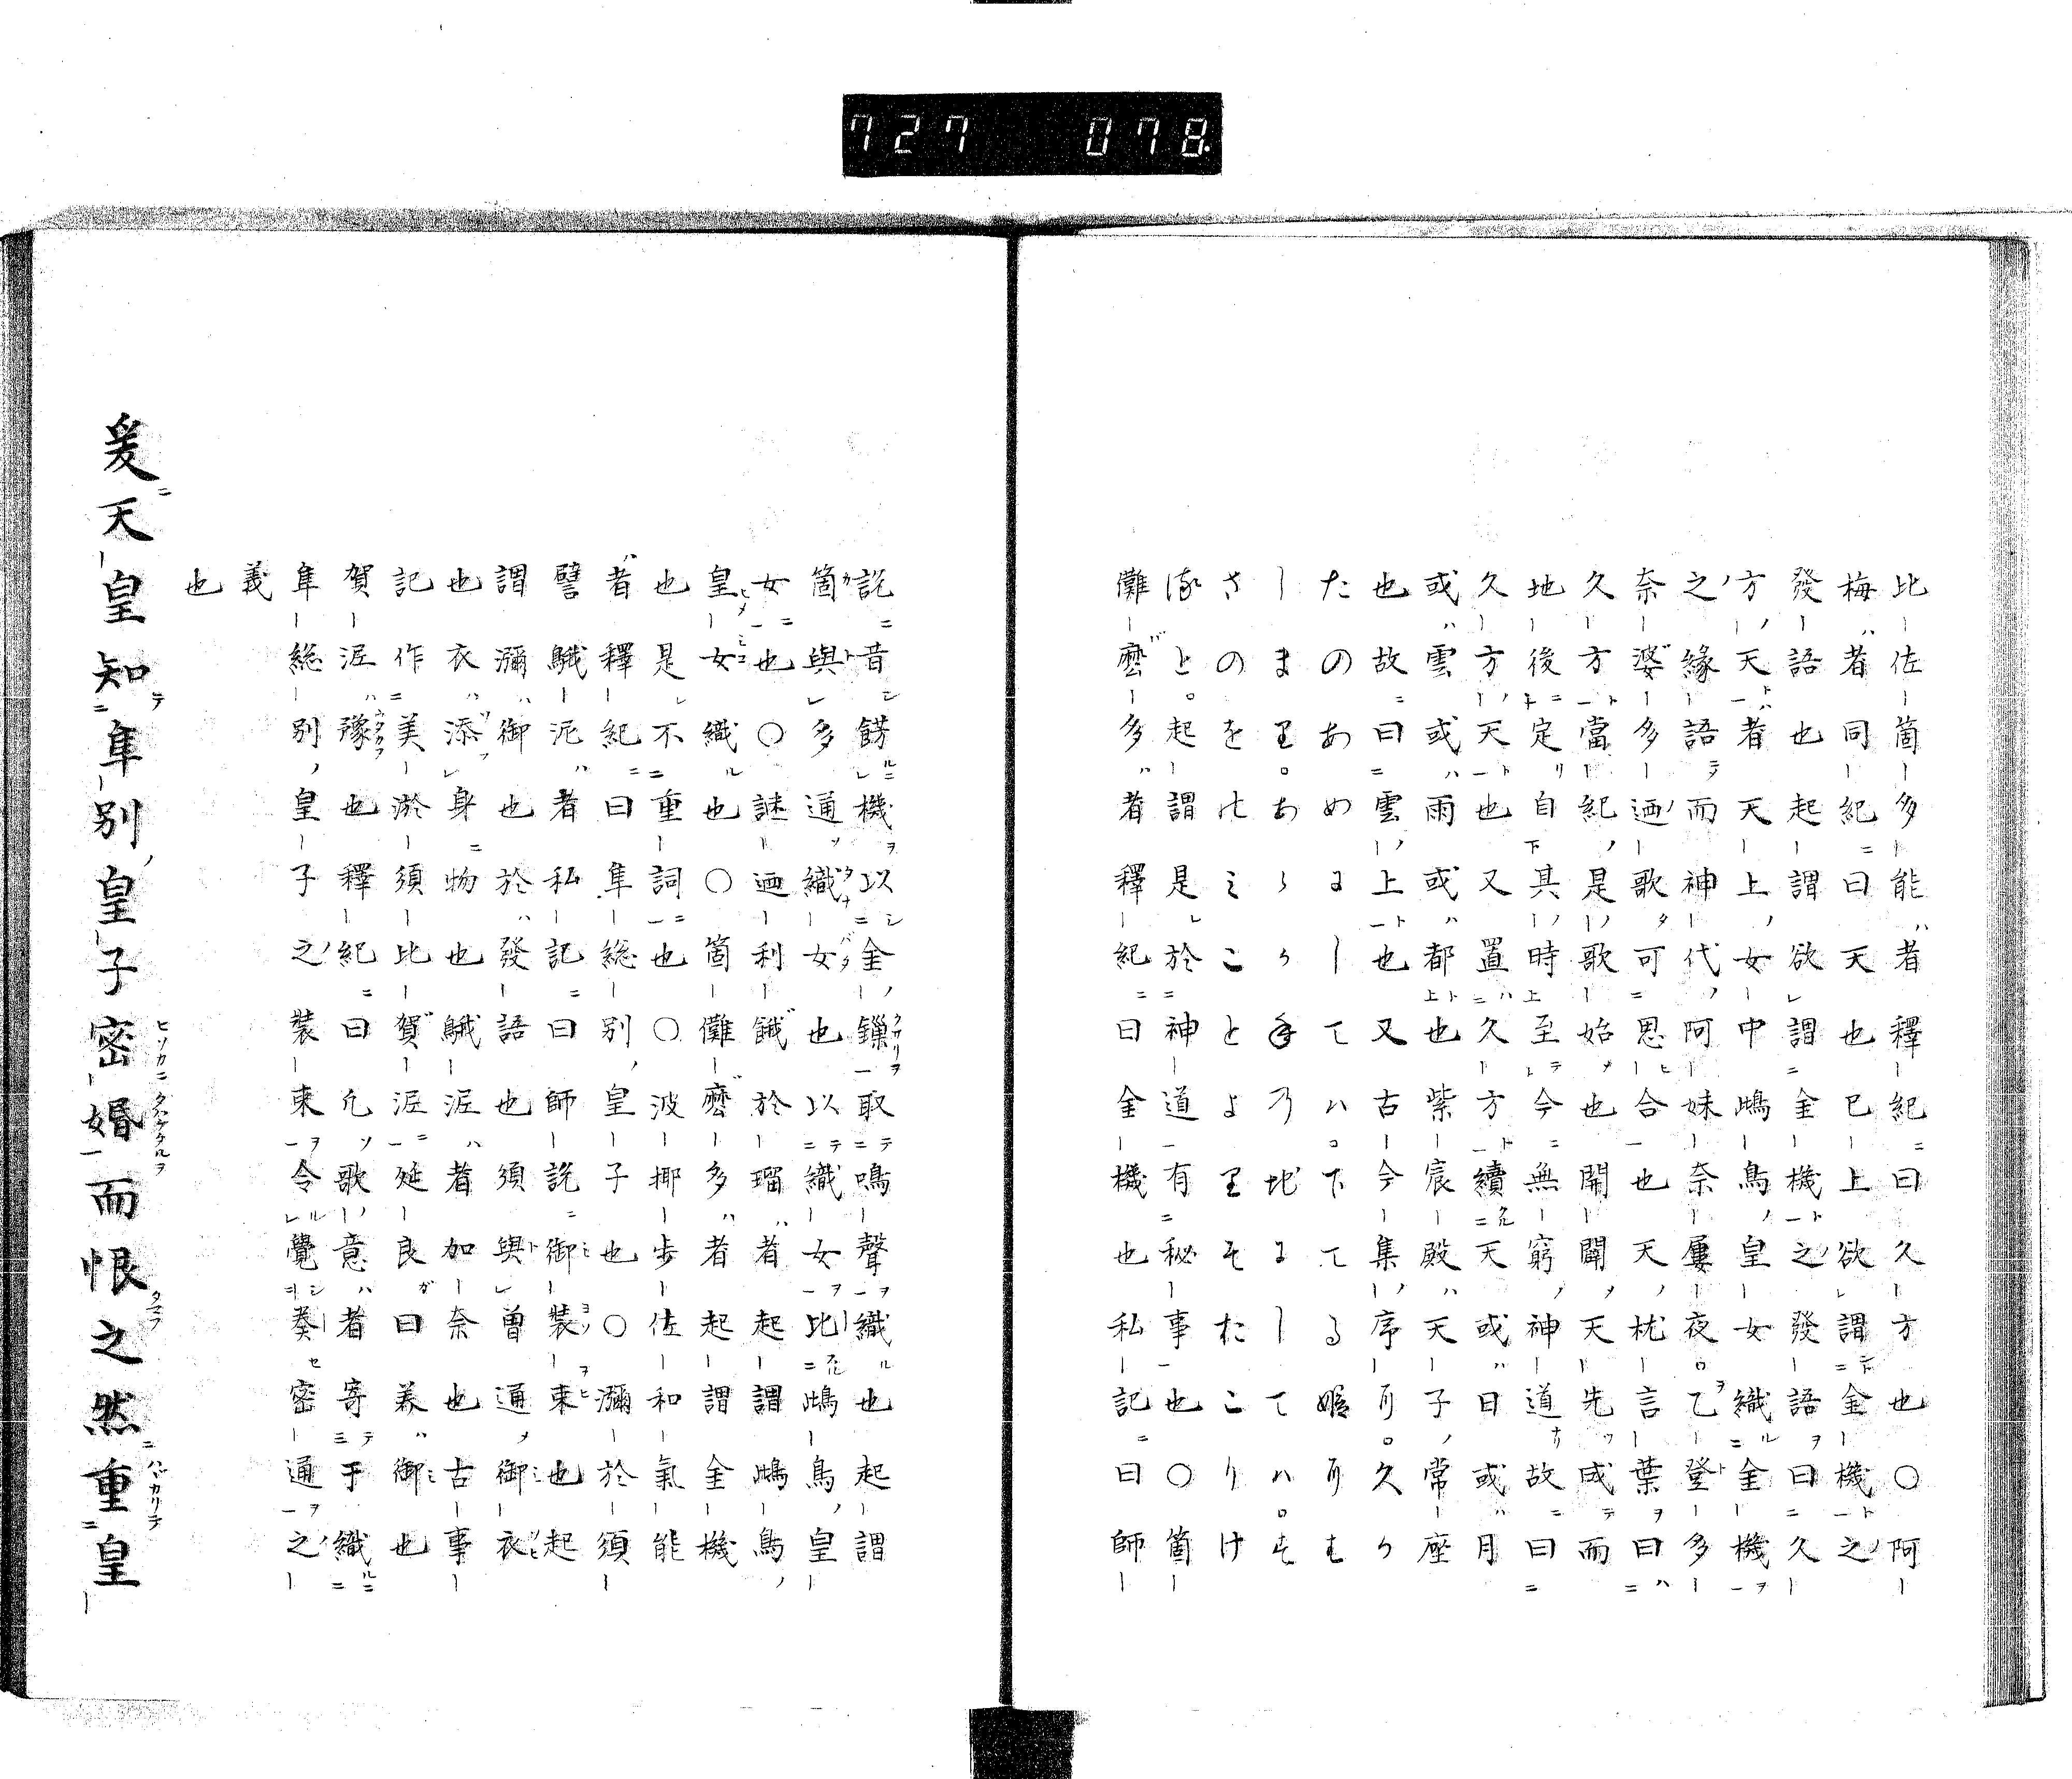 727 078
比佐箇多能者釋紀曰久方也○阿
梅者同紀曰天也已上欲謂金機之
發語也起謂欲謂金機之發語曰久
方天者天上女中鴟鳥皇女織金機
之縁語而神代阿妹奈屢夜乙登多
奈婆多迺歌可思合也天枕言葉曰
久方當紀是歌始也開闢天先成而
地後定自其時至今無窮神道故曰
久方天也又置久方續天或日或月
或雲或雨或都也紫宸殿天子常座
也故曰雲上也又古今集序
たのあめにしてハ下てる姫
しまり
さのをのみことよりそおこりけ
起謂是於神道有秘事也○箇
儺麼多者釋紀曰金機也私記曰師
説昔餝機以金鏁取鳴聲織也起謂
箇與多通織女也以織女比鴟鳥皇
女也○謎迺利餓於瑠者起謂鴟鳥
皇女織也○箇儺麼多者起謂金機
也是不重詞也○波揶歩佐和氣能
者釋紀曰隼総別皇子也○瀰於須
譬鵝泥者私記曰師説御装束也起
謂瀰御也於發語也須與曽通御衣
也衣添身物也鵝泥者加奈也古事
記作美淤須比賀泥延良曰美御也
賀泥豫也釋紀曰凡歌意者寄于織
隼総別皇子之装束令覺奏密通之
義
也
爰天皇知隼別皇子密婚而恨之然重皇